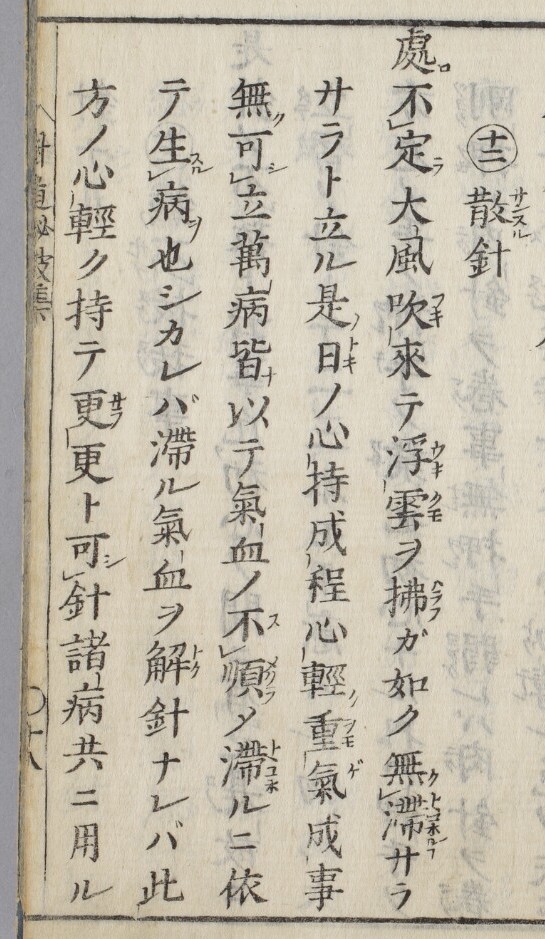 ㊉二 散針
處不定大風吹來テ浮雲ヲ拂ガ如ク無滯サラ
サラト立ル是日ノ心持成程心輕重氣成事
無可立萬病皆以テ氣血ノ不順〆滯ルニ依
テ生病也シカレバ滯ル氣血ヲ解針ナレバ此
方ノ心輕ク持テ更更ト可針諸病共ニ用ル